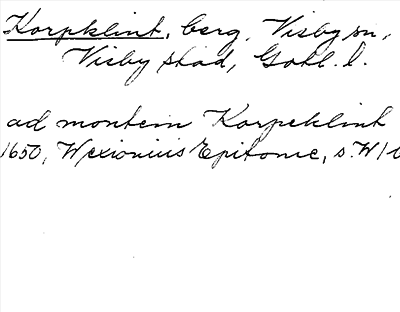 Korpklint, berg, Visby sn,
Visby stad, Gotl. l.
ad montem Korpeklint
1650, Wexionius Epitome, s. W 1